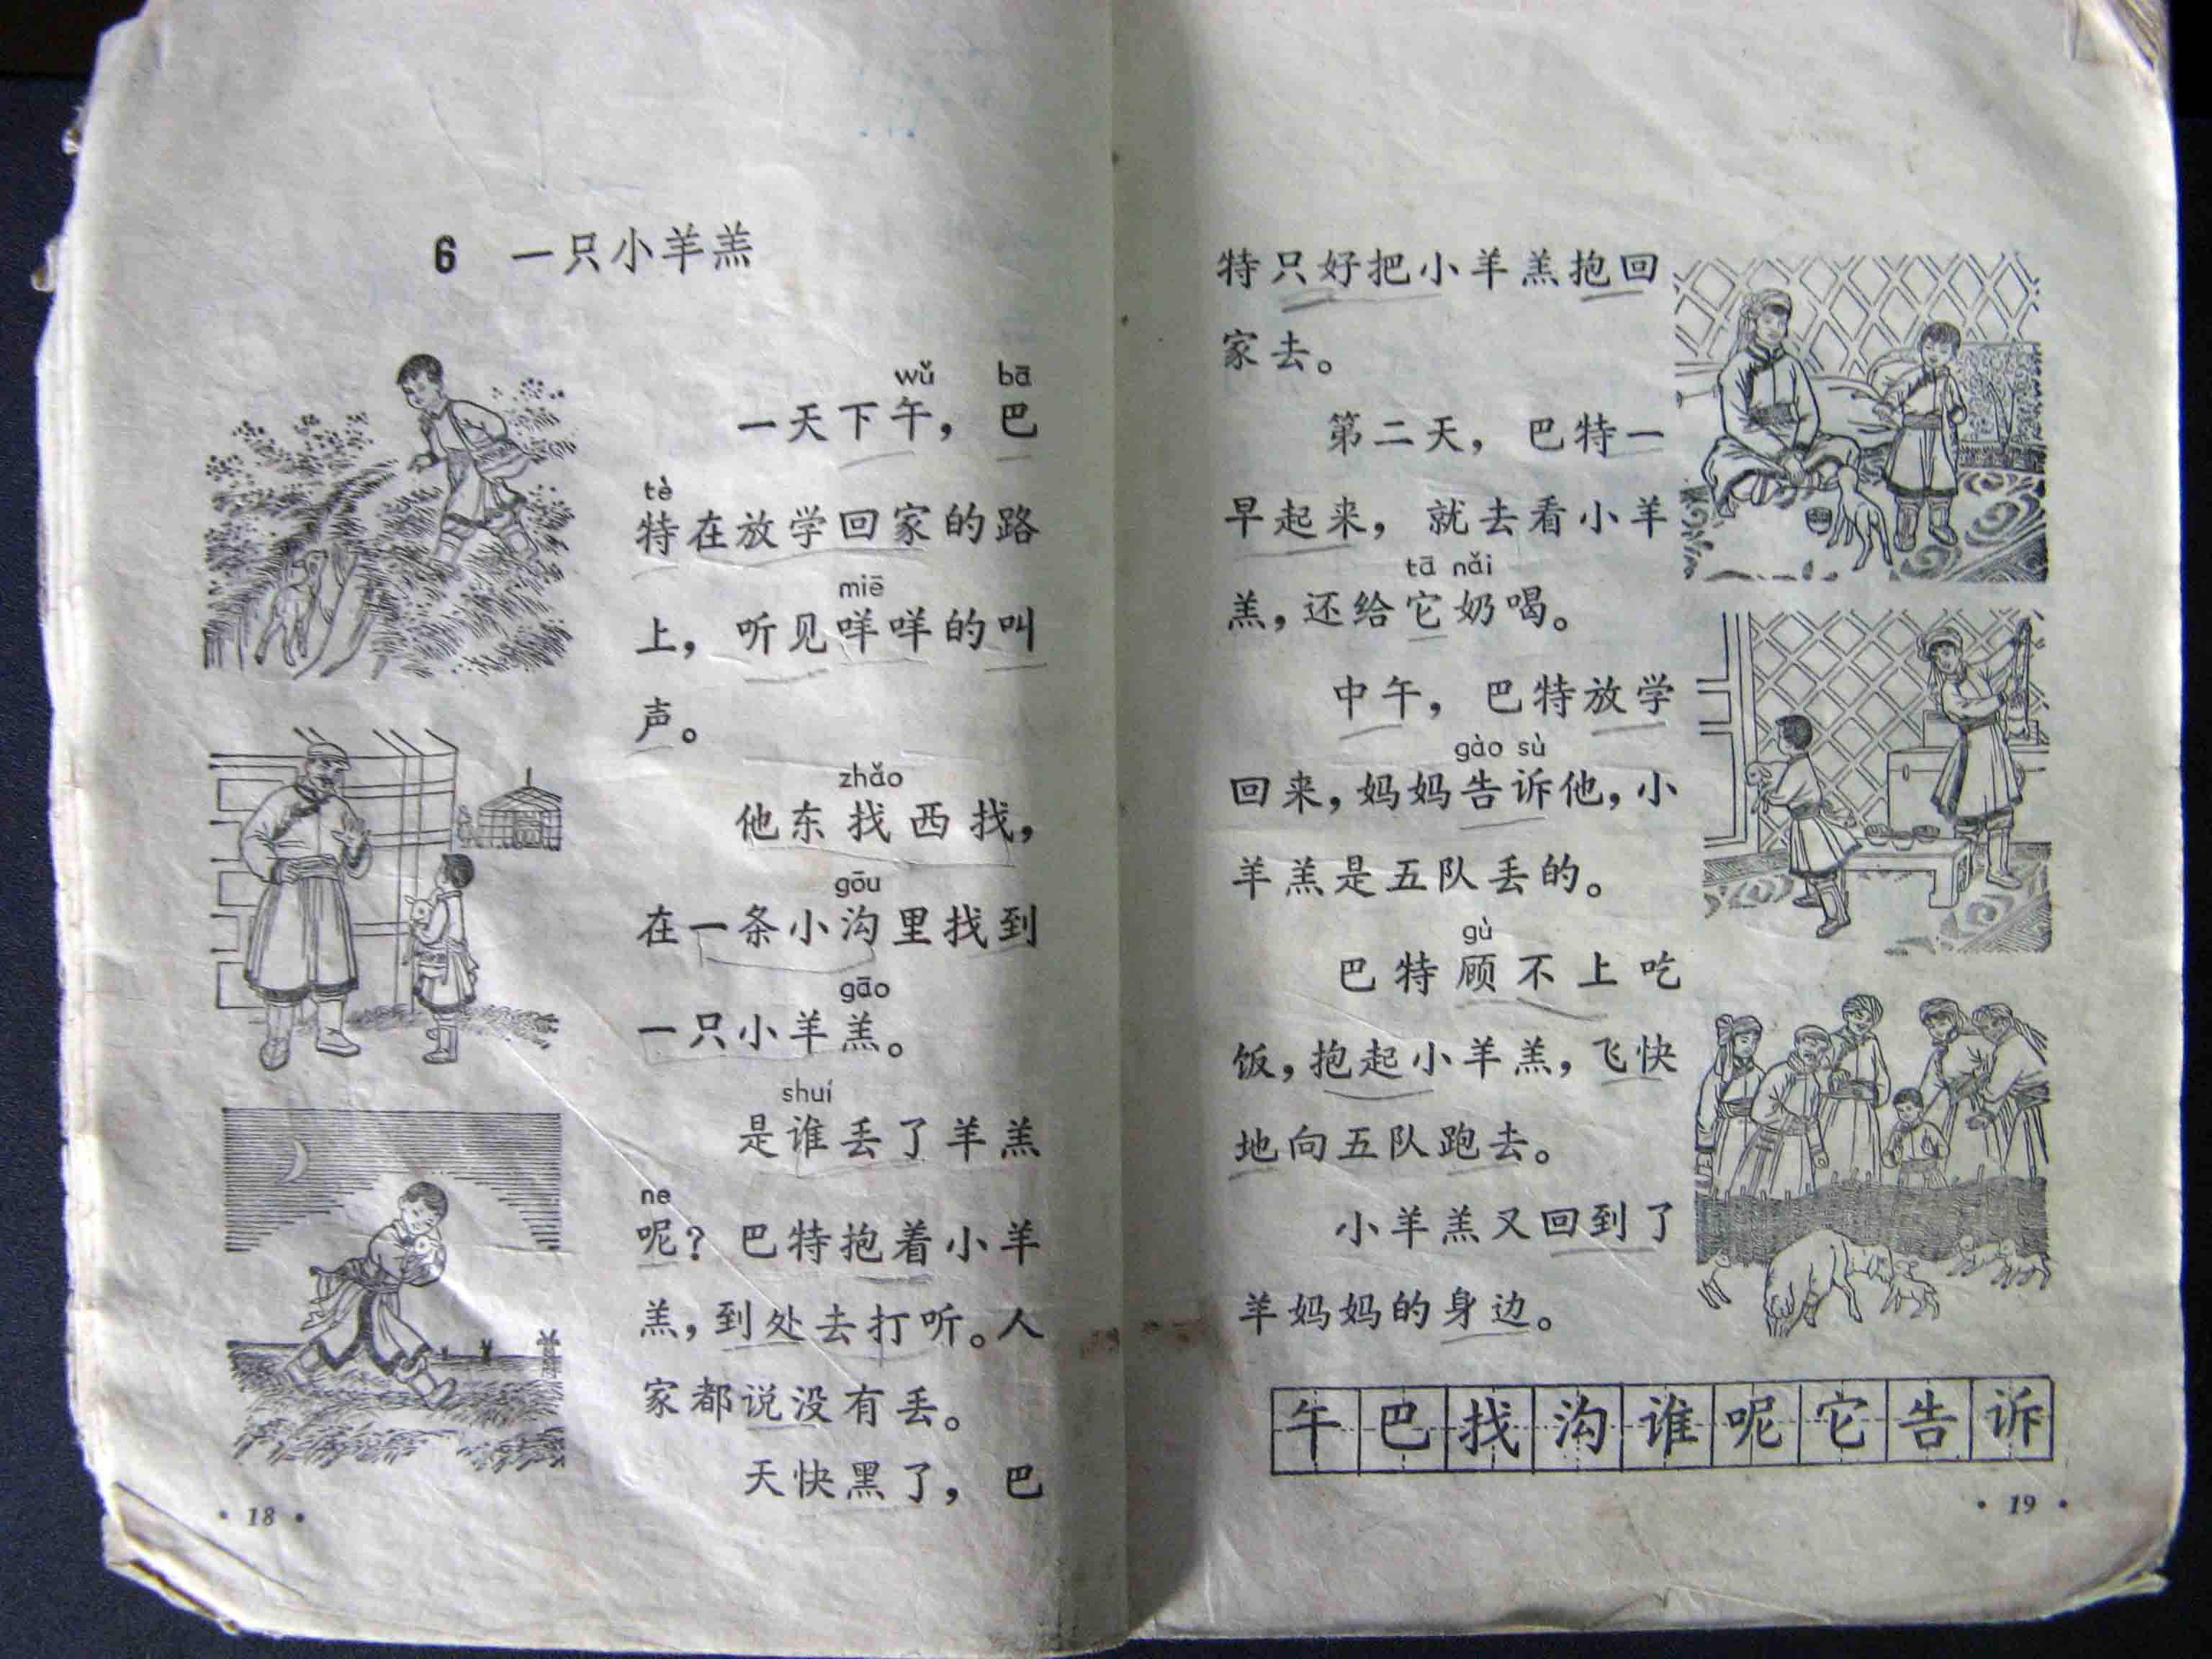 6 一只小羊羔
wǔ bā
一天下午，巴
tè
特在放学回家的路
miē
上，听见咩咩的叫
声。
zhǎo
他东找西找，
gōu
在一条小沟里找到
gāo
一只小羊羔。
shuí
是谁丢了羊羔
ne
呢？巴特抱着小羊
羔，到处去打听。人
家都说没有丢。
天快黑了，巴
·18·
特只好把小羊羔抱回
家去。
第二天，巴特一
早起来，就去看小羊
tā nǎi
羔，还给它奶喝。
中午，巴特放学
gào sù
回来，妈妈告诉他，小
羊羔是五队丢的。
gù
巴特顾不上吃
饭，抱起小羊羔，飞快
地向五队跑去。
小羊羔又回到了
羊妈妈的身边。
午巴找沟谁呢它告诉
·19·